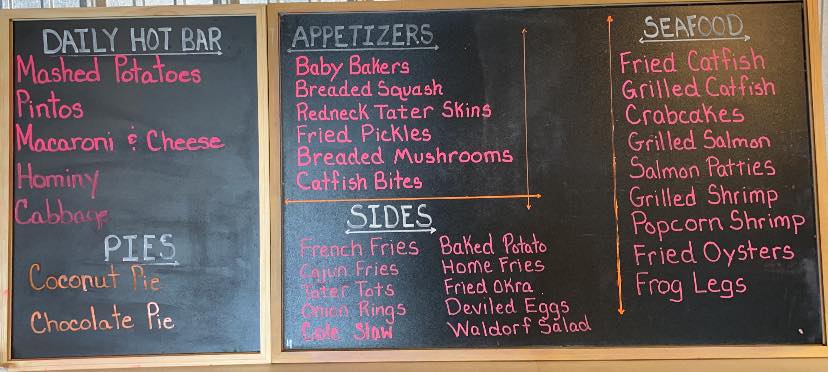 DAILY HOT BAR
Mashed Potatoes
Pintos
Macaroni & Cheese
Hominy
Cabbage
PIES
Coconut Pie
Chocolate Pie
APPETIZERS
Baby Bakers
Breaded Squash
Redneck Tater Skins
Fried Pickles
Breaded Mushrooms
Catfish Bites
SIDES
French Fries
Cajun Fries
Tater Tots
Onion Rings
Cole Slaw
Baked Potato
Home Fries
Fried Okra
Deviled Eggs
Waldorf Salad
SEAFOOD
Fried Catfish
Grilled Catfish
Crabcakes
Grilled Salmon
Salmon Patties
Grilled Shrimp
Popcorn Shrimp
Fried Oysters
Frog Legs